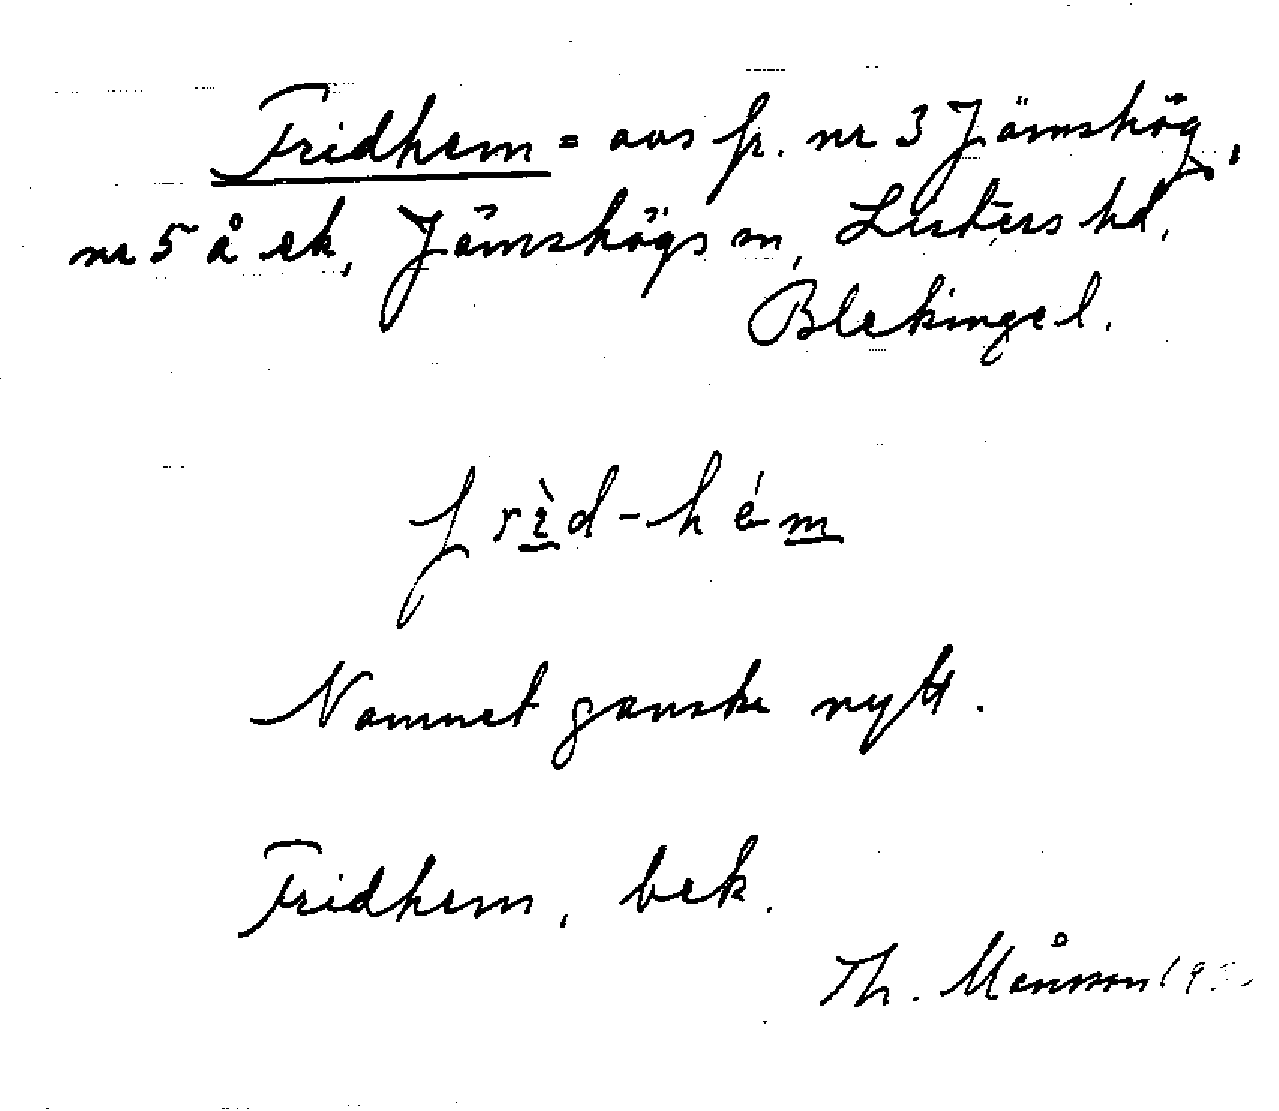 Fridhem = avs fr. nr 3 Jämshög,
nr 5 å ek, Jämshögs sn, Listers hd,
Blekinge l.
frìd-hém
Namnet ganske nytt.
Fridhem, bek.
Th. Månsson